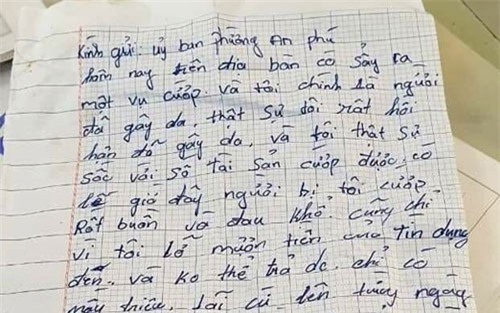 Kính gửi: uỷ ban Phường An phú
hôm nay trên địa bàn có sảy ra
một vụ cướp và tôi chính là người
đã gây da, thật sự tôi rất hối
hận đã gây da, và tôi thật sự
sốc với số tài sản cướp được. có
lẽ giờ đây người bị tôi cướp
Rất buồn và đau khổ. cũng chỉ
vì tôi lỡ mượn tiền của tín dụng
đen. và ko thể trả dc. chỉ có
mấy triệu, lãi cứ lên từng ngày